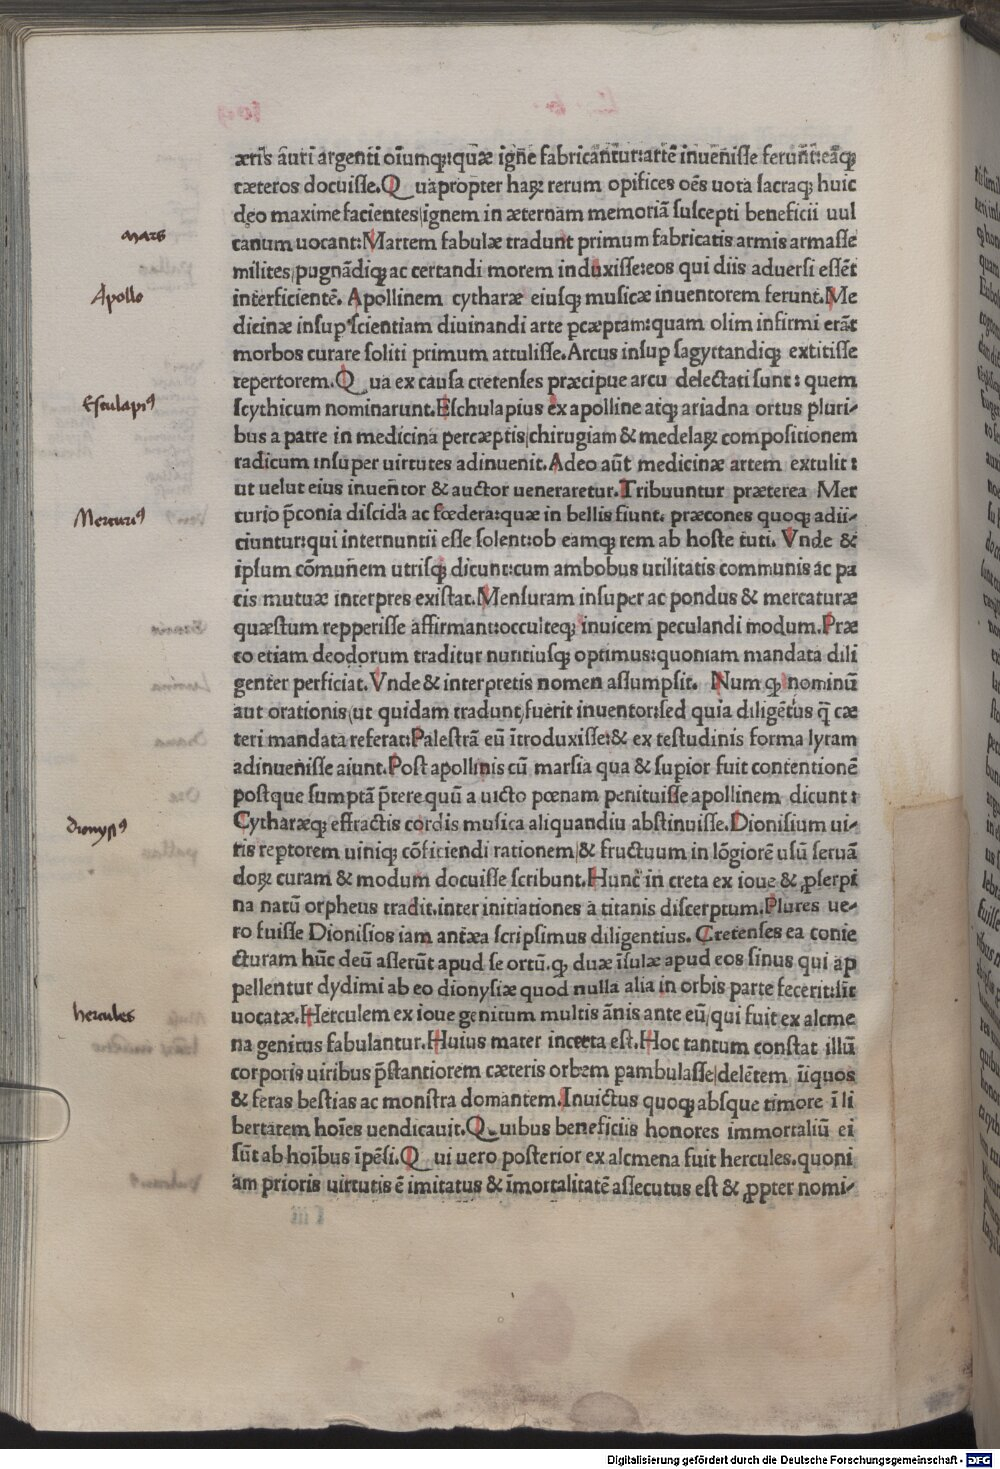 æris auri argenti oīumq;:quæ igne fabricantur:artē inuenisse ferunt:eāq;
cæteros docuisse.Quapropter haꝝ rerum opifices oēs uota sacraq; huic
deo maxime facientes|ignem in æternam memoriā suscepti beneficii uul
canum uocant:Martem fabulæ tradunt primum fabricatis armis armasse
mars
milites|pugnādiq; ac certandi morem induxisse:eos qui diis aduersi essēt
Apollo
interficientē. Apollinem cytharæ eiusq; musicæ inuentorem ferunt.Me
dicinæ insuꝑ scientiam diuinandi arte ꝑcæptam:quam olim infirmi erāt
morbos curare soliti primum attulisse.Arcus insuꝑ sagyttandiq; extitisse
repertorem.Qua ex causa cretenses præcipue arcu delectati sunt: quem
Esculapiꝰ
scythicum nominarunt.Eschulapius ex apolline atq; ariadna ortus pluri-
bus a patre in medicina percæptis|chirugiam & medelaꝝ compositionem
radicum insuper uirtutes adinuenit.Adeo aūt medicinæ artem extulit:
ut uelut eius inuentor & auctor ueneraretur.Tribuuntur præterea Mer
Mercuriꝰ
curio p̄conia discidia ac fœdera:quæ in bellis fiunt. præcones quoq; adii-
ciuntur:qui internuntii esse solent:ob eamq; rem ab hoste tuti. Vnde &
ipsum cōmunem utrisq; dicunt:cum ambobus utilitatis communis ac pa
cis mutuæ interpres existat.Mensuram insuper ac pondus & mercaturæ
quæstum repperisse affirmant:occulteq; inuicem peculandi modum.Præ
co etiam deodorum traditur nuntiusq; optimus:quoniam mandata dili
genter perficiat.Vnde & interpretis nomen assumpsit. Num q; nominū
aut orationis(ut quidam tradunt)fuerit inuentor:sed quia diligētius q̄ cæ
teri mandata referat:Palestrā eū ītroduxisse:& ex testudinis forma lyram
adinuenisse aiunt.Post apollinis cū marsia qua & supior fuit contentionē
postque sumptā p̄ter equū a uicto pœnam penituisse apollinem dicunt:
Dionysiꝰ
Cytharæq; effractis cordis musica aliquandiu abstinuisse.Dionisium ui-
tis reptorem uiniq; cōficiendi rationem|& fructuum in lōgiorē usū seruā
doꝝ curam & modum docuisse scribunt.Hunc in creta ex ioue & ꝓserpi
na natū orpheus tradit.inter initiationes a titanis discerptum.Plures ue-
ro fuisse Dionisios iam antæa scripsimus diligentius. Cretenses ea conie
cturam hūc deū asserūt apud se ortū.q; duæ īsulæ apud eos sinus qui ap
pellentur dydimi ab eo dionysiæ quod nulla alia in orbis parte fecerit:sīt
hercules
uocatæ.Herculem ex ioue genitum multis ānis ante eū|qui fuit ex alcme
na genitus fabulantur.Huius mater incerta est.Hoc tantum constat illū
corporis uiribus p̄stantiorem cæteris orbem pambulasse|delētem īiquos
& feras bestias ac monstra domantem.Inuictus quoq; absque timore ī li
bertatem hoīes uendicauit.Quibus beneficiis honores immortaliū ei
sūt ab hoībus īpēsi.Qui uero posterior ex alcmena fuit hercules.quoni
am prioris uirtutis ē imitatus & īmortalitatē assecutus est & ꝓpter nomi-
Digitalisierung gefördert durch die Deutsche Forschungsgemeinschaft - DFG